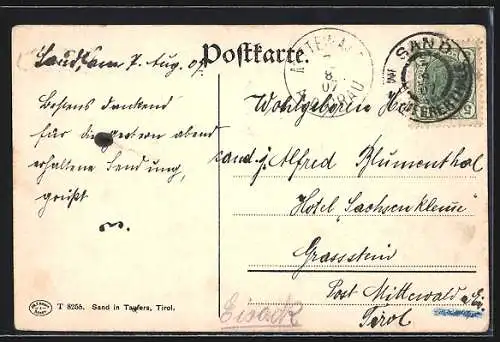 Sand, am 7. Aug. 07
Postkarte.
SAND
8
07
Bestens dankend
für die gestern abend
erhaltene Sendung,
grüßt
Wohlgeboren
cand. j. Alfred Blumenthal
Hotel "Sachsenklemme"
Grasstein
Post Mittewald a. Ei.
Tirol
Eisack
T 8258. Sand in Taufers, Tirol.